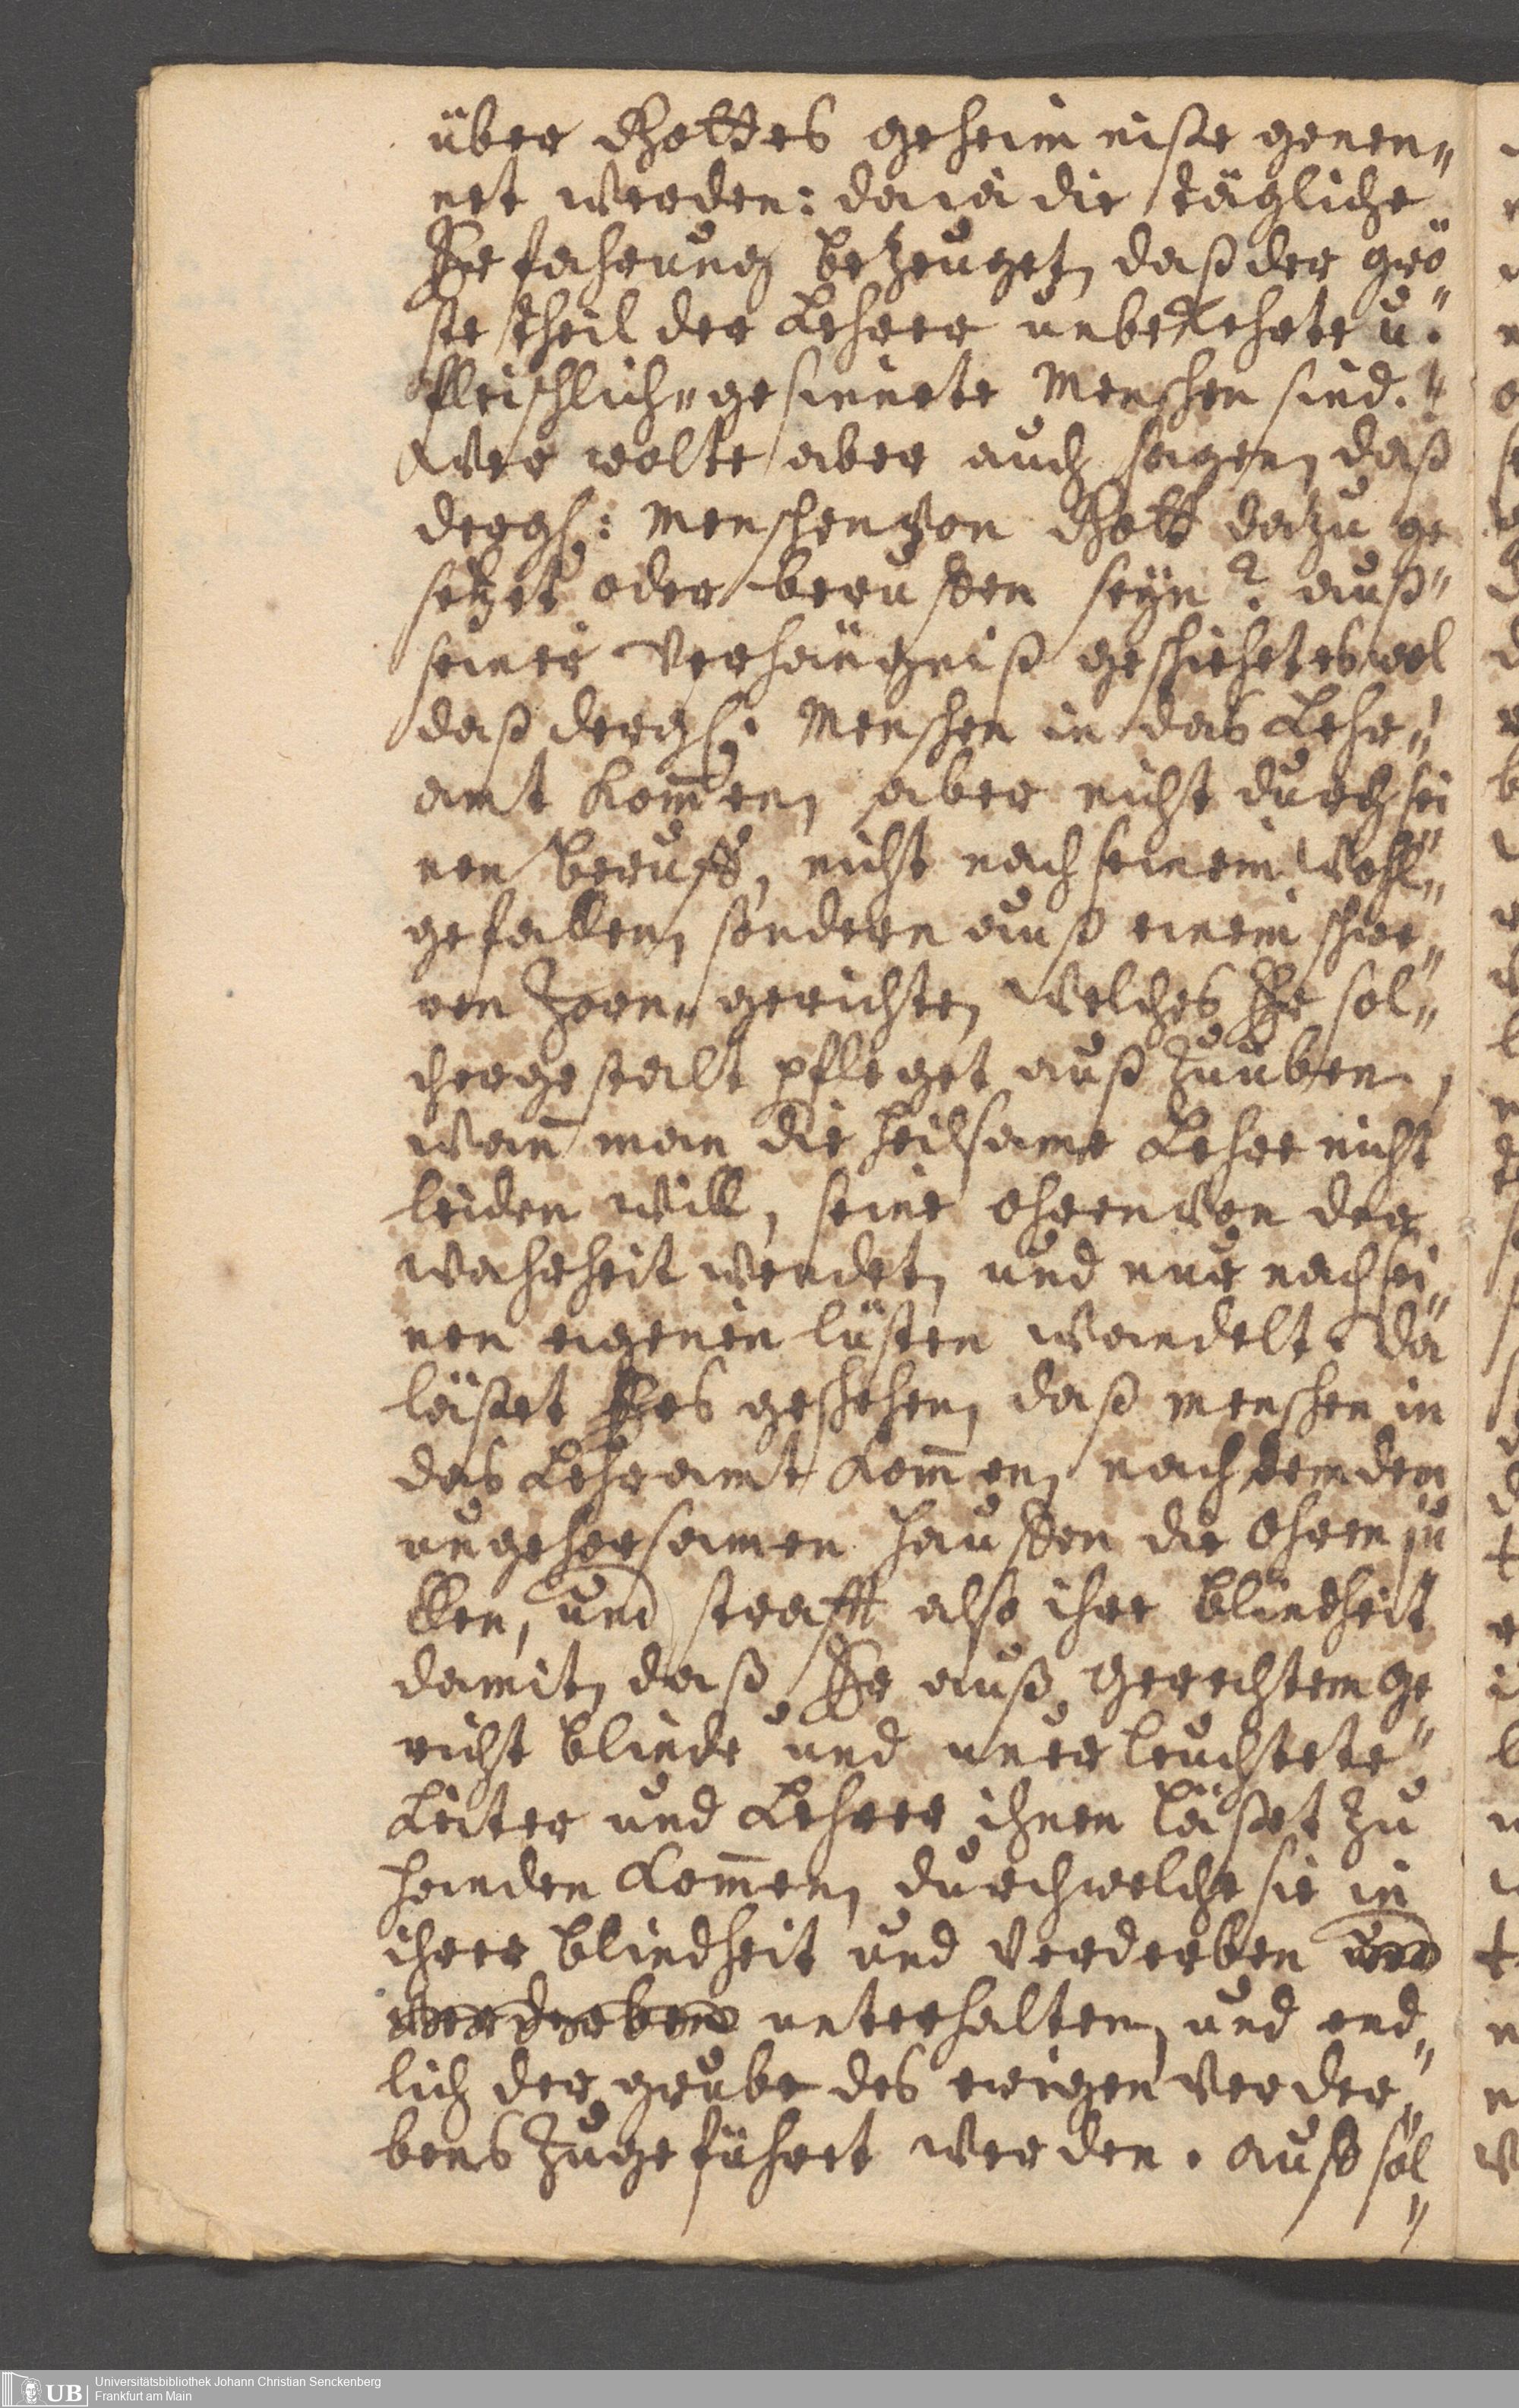 über Gottes geheimniße genen„
net werden: da ia die tägliche
Erfahrung bezeuget, daß der grö„
ste theil der Lehrer unbekehrte u.
fleischlich„gesinnete Menschen sind.
Wer wolte aber auch sagen, daß
dergl: Menschen von Gott dazu ge„
setzet oder beruffen seyn? auß
seiner Verhängniß geschiehet es wol
daß dergl: Menschen in das Lehr„
amt kom̄en, aber nicht durch sei„
nen Beruff, nicht nach seinem Wohl„
gefallen, sondern auß einem schwe„
ren Zorn„gerichte, welches Er sol„
chergestalt pfleget außzuüben,
wan̄ man die heilsame Lehre nicht
leiden will, seine ohren von der
wahrheit wendet, und nur nach sei„
nen eigenen lüsten wandelt. Da
läßet Er es geschehen, daß menschen in
das Lehramt kom̄en, nach dem dem
ungehorsamen hauffen die Ohren jü„
cken, und strafft also ihre blindheit
damit, daß Er auß gerechtem ge„
richt blinde und unerleuchtete
Leiter und Lehrer ihnen läßet zu
handen kom̄en, durch welche sie in
ihrer blindheit und verderben und
verderben unterhalten, und end„
lich der grube des ewigen verder„
bens zugeführet werden. Auß sol„
Universitätsbibliothek Johann Christian Senckenberg
Frankfurt am Main
UB